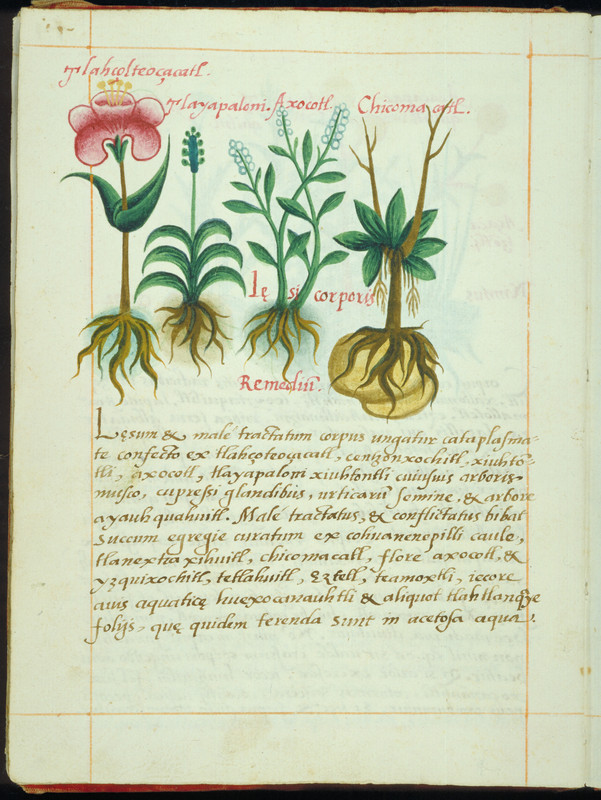 Tlahçolteoçacatl.
Tlayapaloni. Axocotl. Chicomacatl.
Lę si corporis
Remediũ.
Lęsum & malè tractatum corpus ungatur cataplasma-
te confecto ex tlahçoteoçacatl, centzonxochitl, xiuhtõ-
tli, axocotl, tlayapaloni xiuhtontli cuiusuis arboris
musco, cupressi glandibus, urticarũ semine, & arbore
ayauh quahuitl. Malè tractatus, & conflictatus bibat
succum egregie curatum ex cohuanenepilli caule,
tlanextia xihuitl, chicomacatl, flore axocotl, &
yzquixochitl, tetlahuitl, eztetl, teamoxtli, iecore
auis aquaticę huexocanauhtli & aliquot tlahtlanquye
folijs, quę quidem terenda sunt in acetosa aqua.